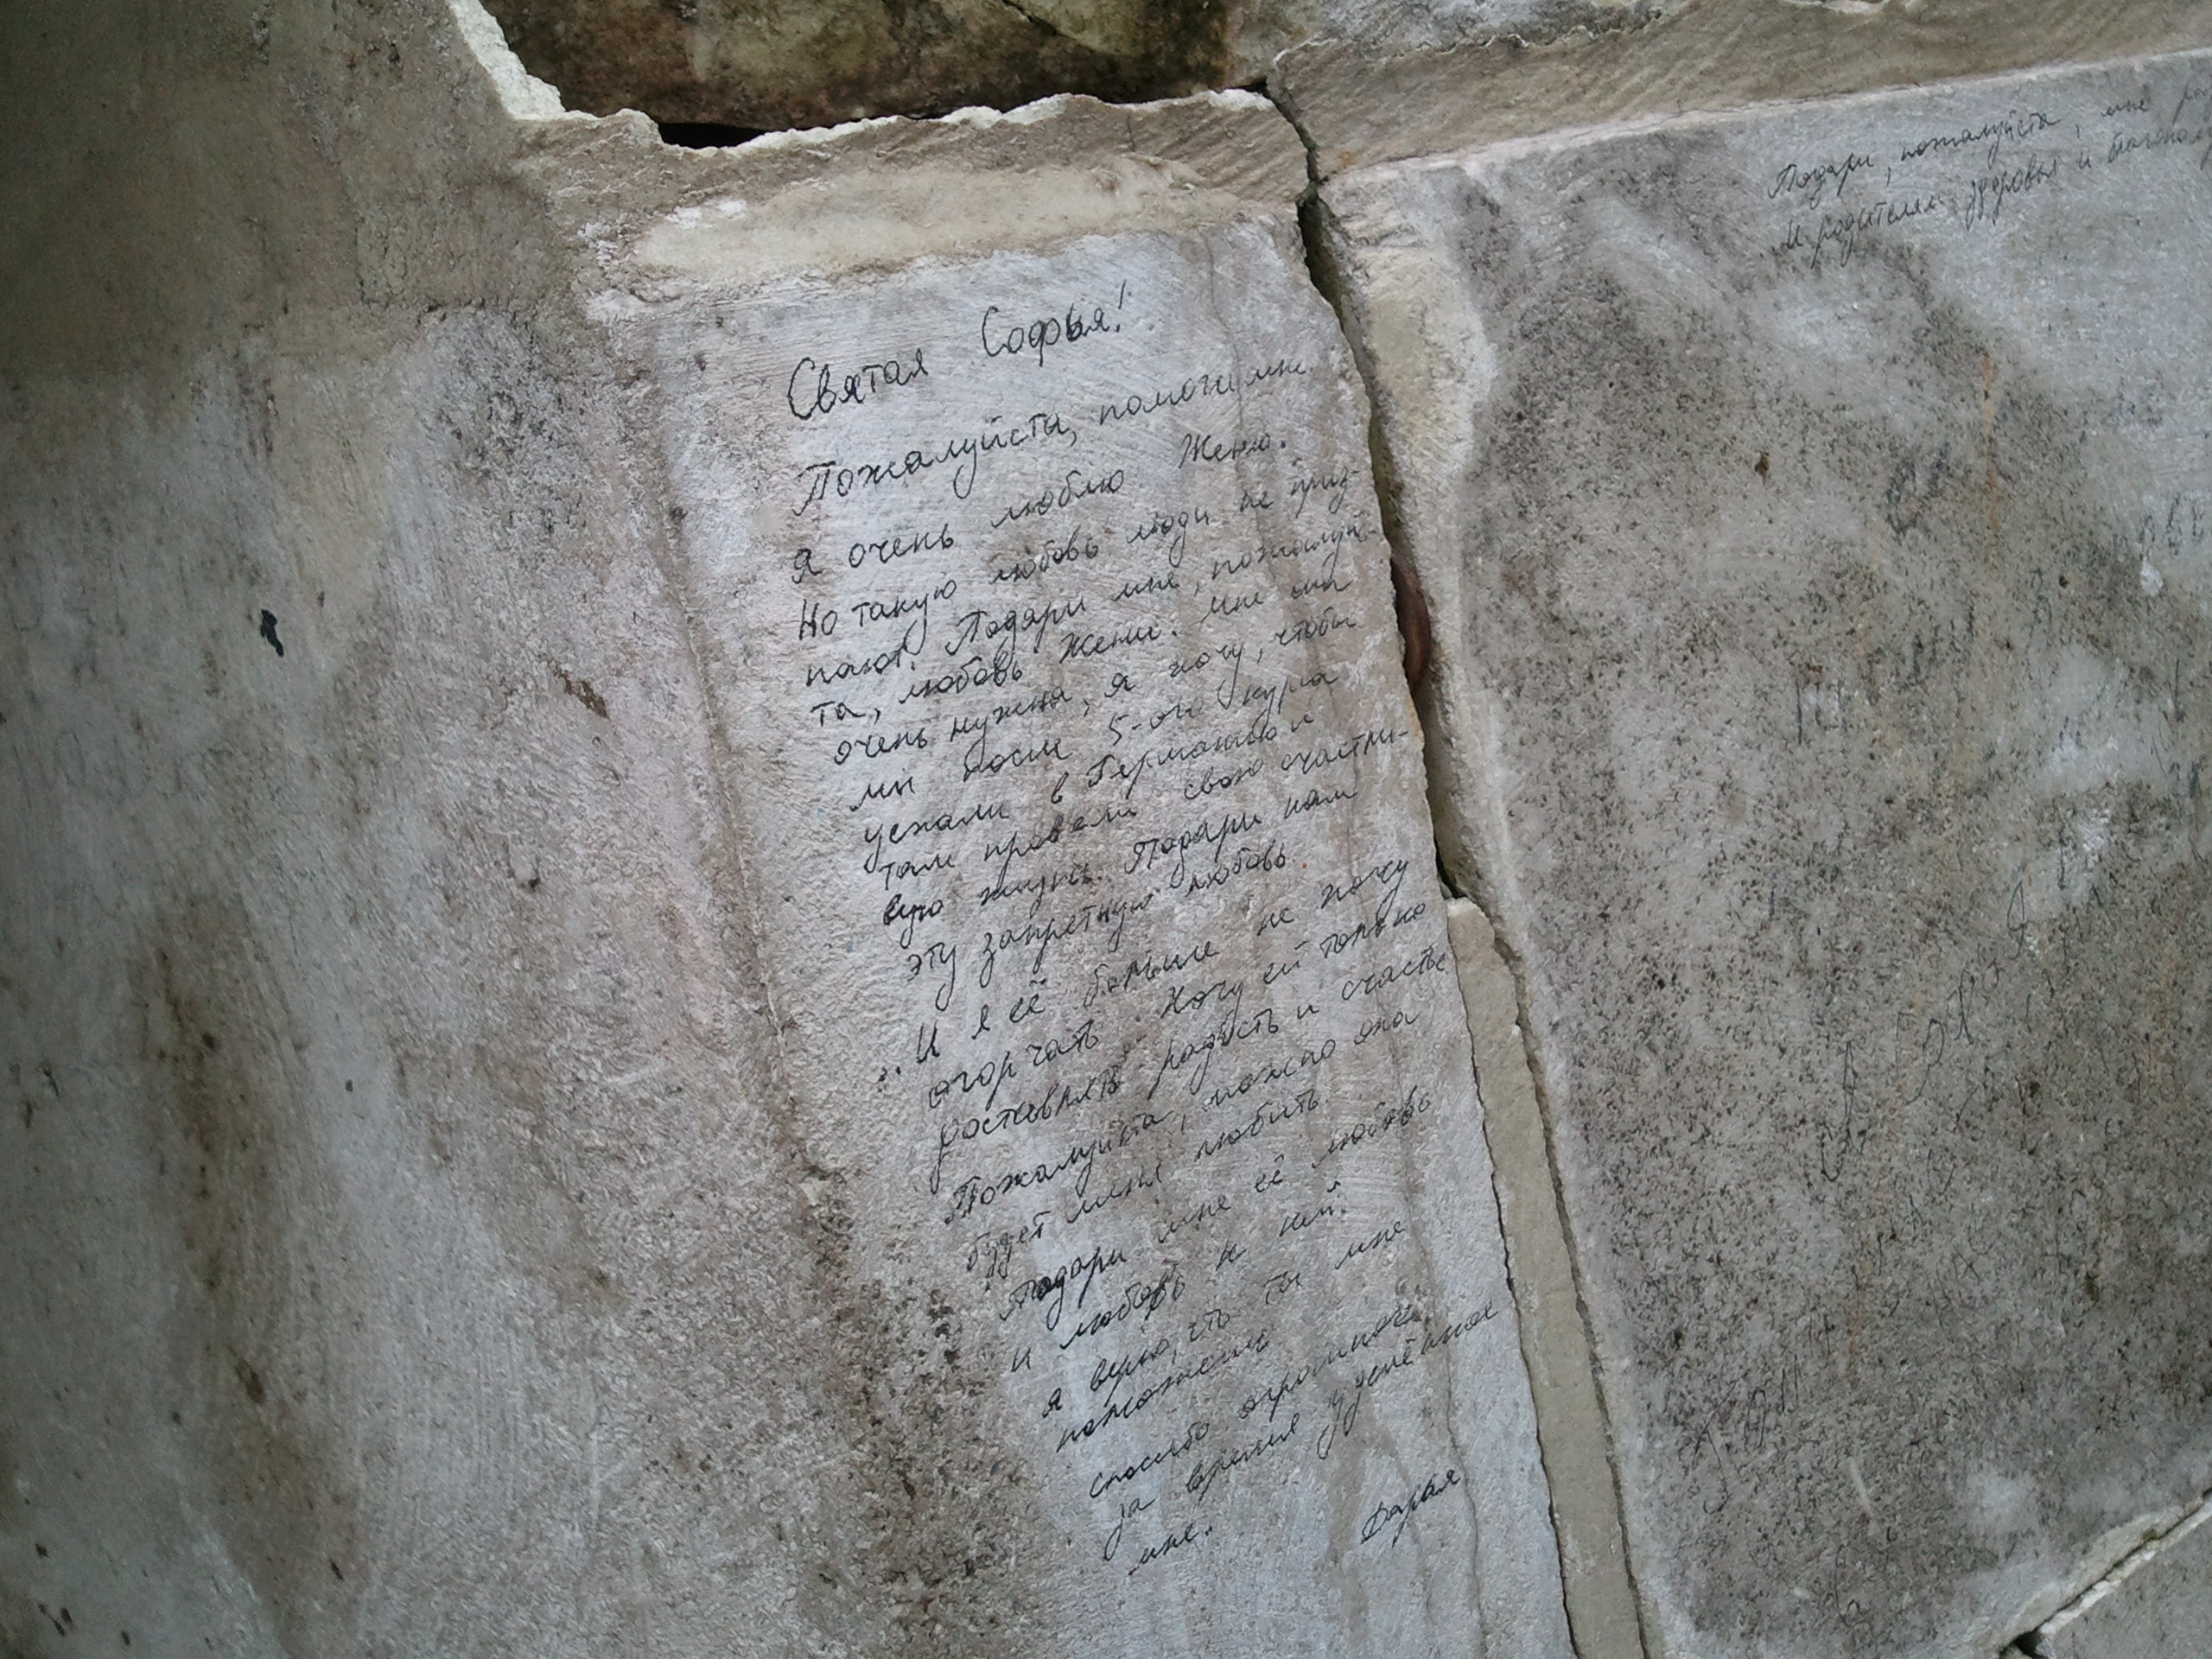 Святая Софья!
Пожалуйста, помоги мне
Я очень люблю Женю.
Но такую любовь люди не приз-
нают. Подари мне, пожалуй-
ста, любовь Жени. Мне она
очень нужна, я хочу, чтобы
мы после 5-ого курса
уехали в Германию и
там провели свою счастли-
вую жизнь. Подари нам
эту запретную любовь.
И я её больше не хочу
огорчать. Хочу ей только
доставлять радость и счастье
Пожалуйста, можно она
будет меня любить.
Подари мне её любовь
и любовь к ней.
Я верю, что ты мне
поможешь.
Спасибо огромное
за время уделённое
мне. Дарья
Подари, пожалуйста, мне
и родителям здоровья и